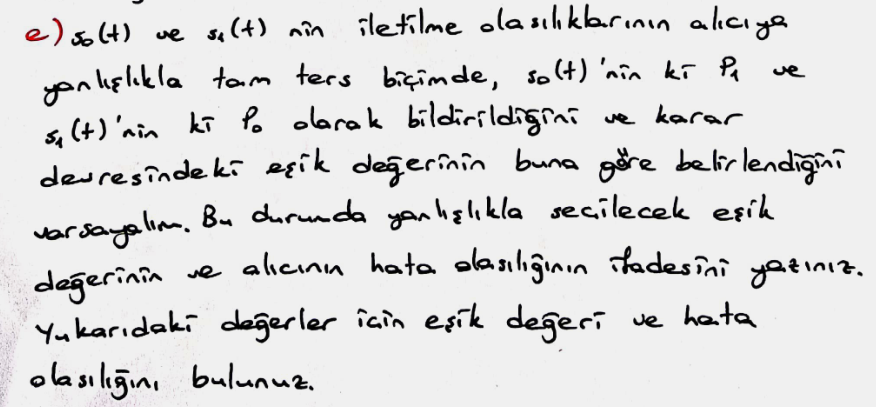 e) s₀(t) ve s₁(t) nin iletilme olasılıklarının alıcıya
yanlışlıkla tam ters biçimde, s₀(t)'nin ki P₁ ve
s₁(t)'nin ki P₀ olarak bildirildiğini ve karar
devresindeki eşik değerinin buna göre belirlendiğini
varsayalım. Bu durumda yanlışlıkla seçilecek eşik
değerinin ve alıcının hata olasılığının ifadesini yazınız.
Yukarıdaki değerler için eşik değeri ve hata
olasılığını bulunuz.